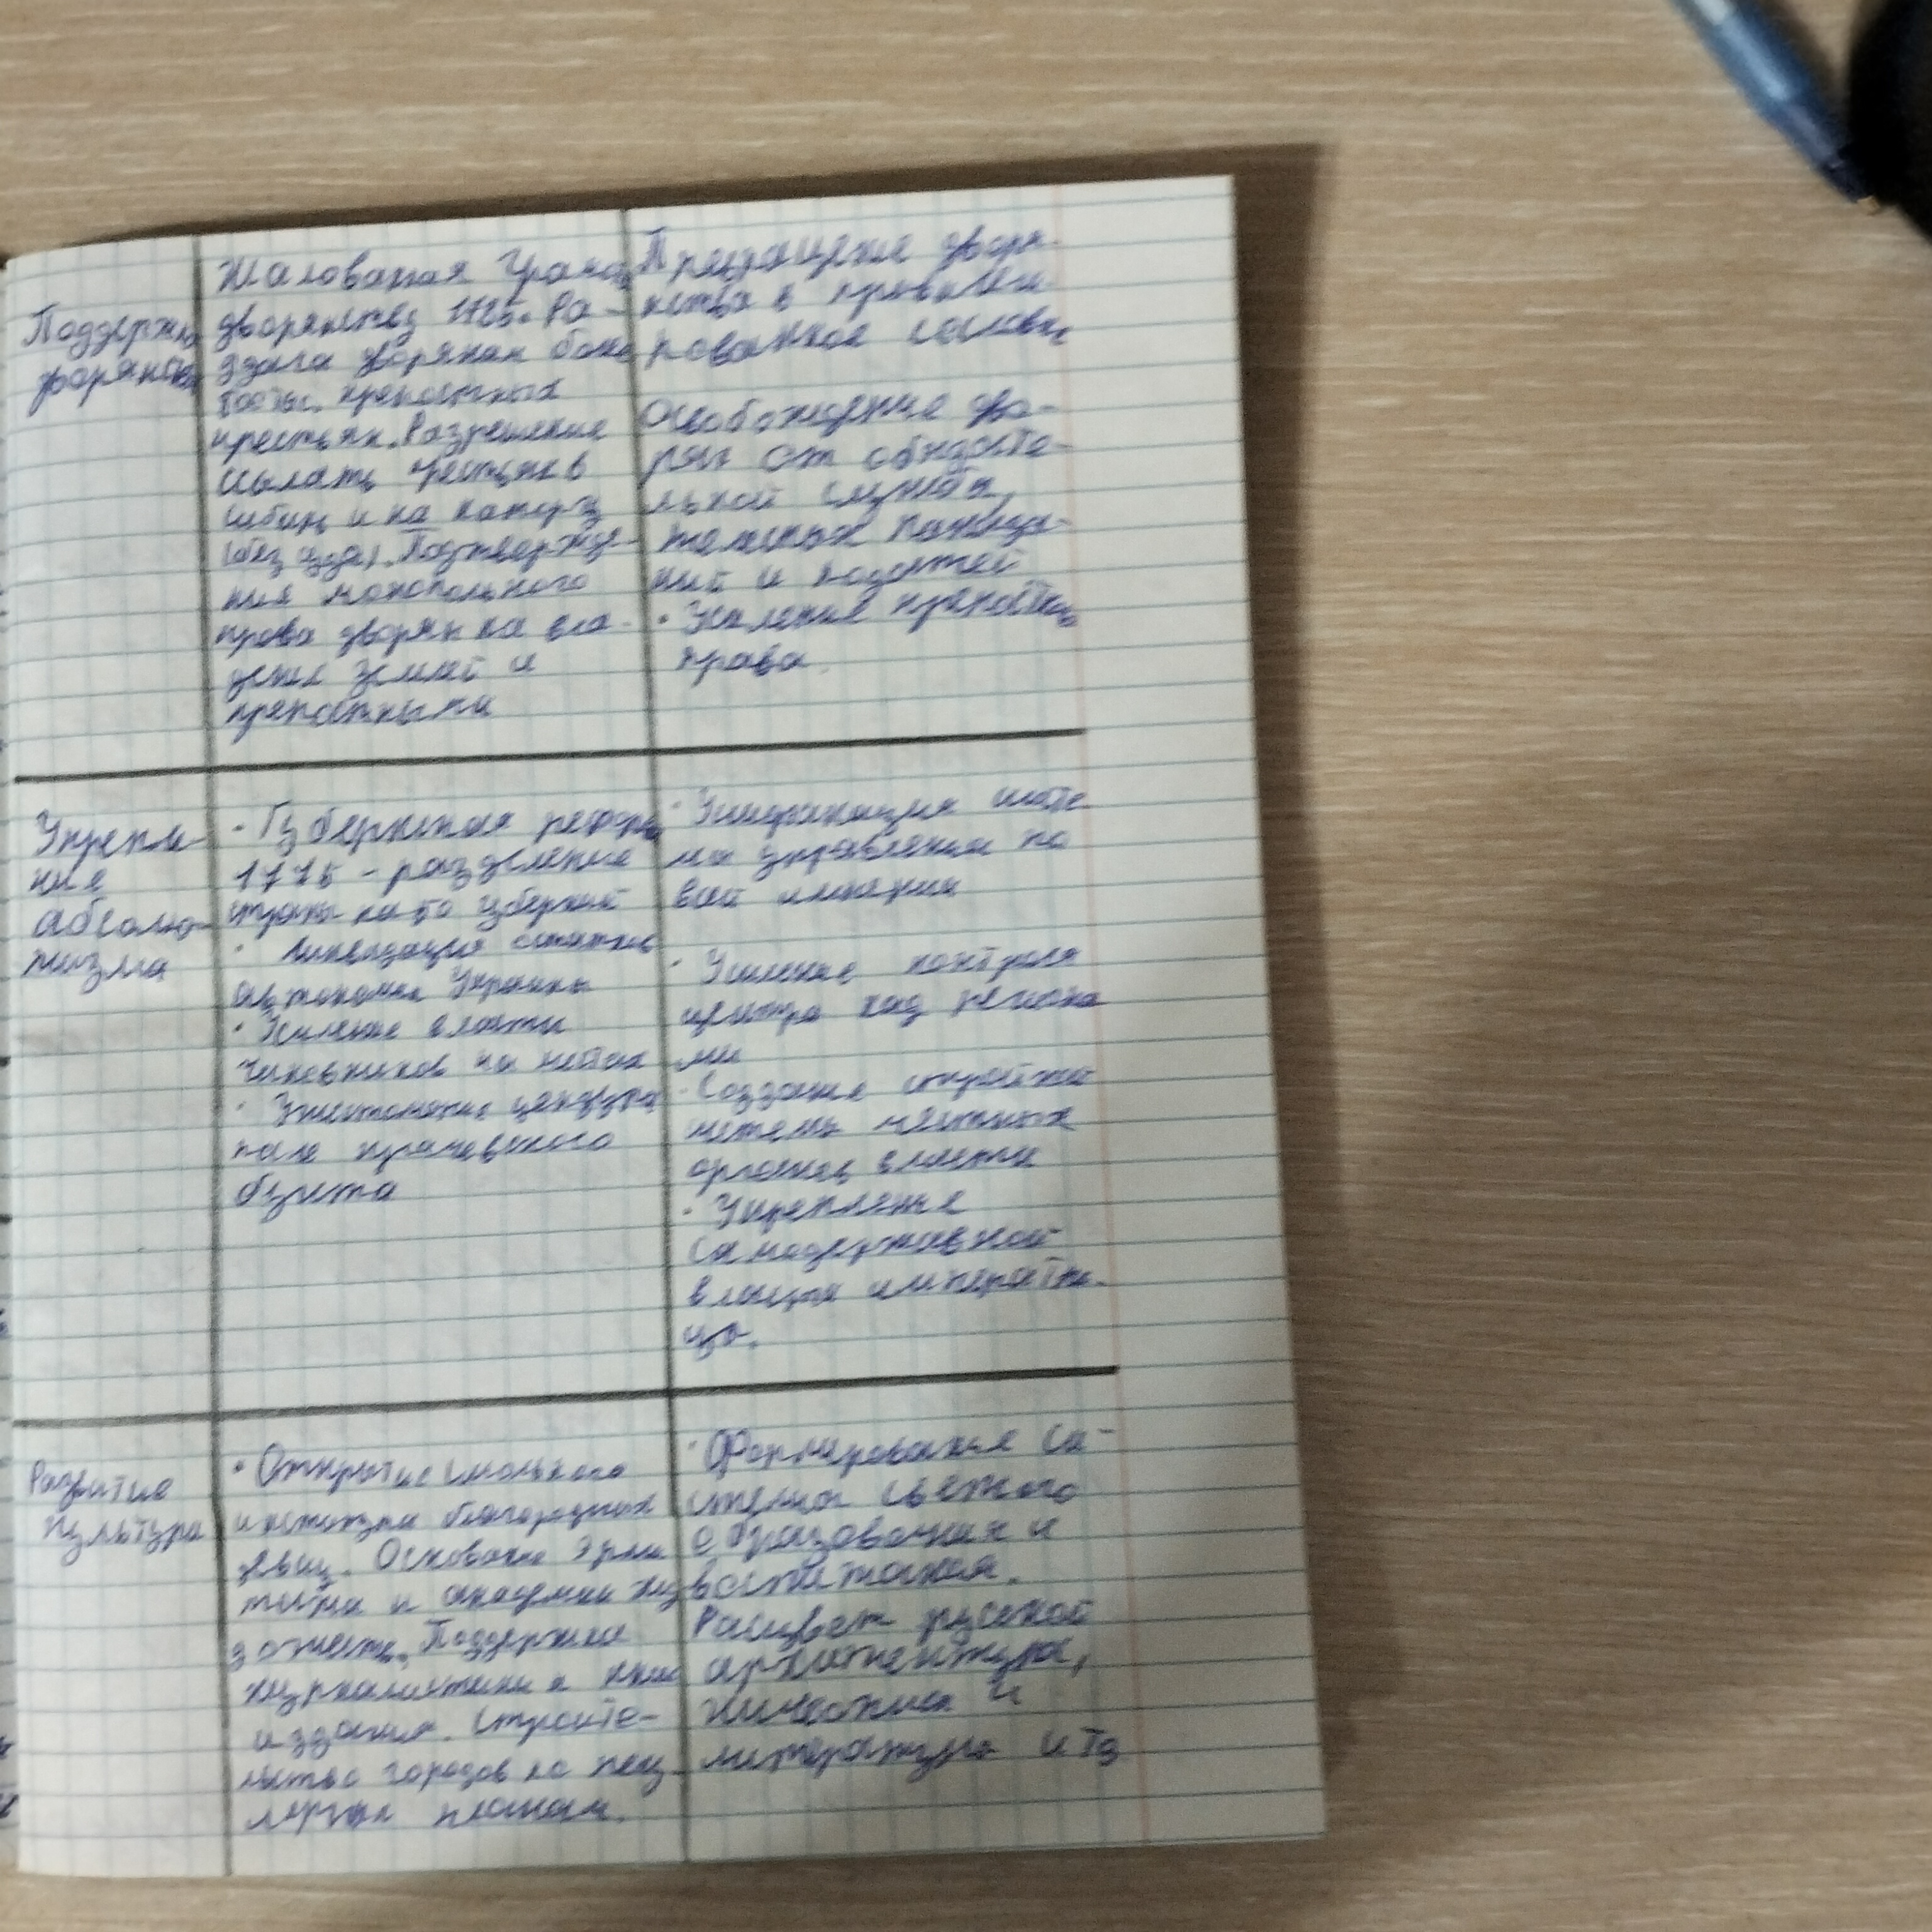 Поддержка
дворянства
Жалованая Грамо
дворянству 1785. Ра-
здача дворянам более
крепостных
крестьян. Разрешение
ссылать крестьян в
сибирь и на каторгу
(без суда). Подтвержде-
ния монопольного
права дворян на вла-
дения землёй и
крепостными
Превращение дворя-
нства в привилеги
рованное сословие
Освобождение дво-
рян от обязате-
льной службы,
телесных наказа-
ний и податей
· Усиление крепостно
права.
Укрепле-
ние
абсолю-
тизма
· Губернская реформ
1775 - разделение
страны на 50 губерний
· Ликвидация остатков
автономии Украины
· Усиление власти
чиновников на местах
· Ужесточение цензуры
после пугачевского
бунта
· Унификация систе
мы управления по
всей империи
· Усиление контроля
центра над региона
ми
· Создание стройной
системы местных
органов власти
· Укрепление
самодержавной
власти императри-
цы.
Развитие
культуры
· Открытие Смольного
института благородных
девиц. Основание Эрми
тажа и академии худ
Поддержка
журналистики и книг
издания. Строите-
льство городов по регу
лярным планам.
· Формирование си-
стемы светского
образования и
воспитания.
Расцвет русской
архитектуры,
живописи и
литературы и тд